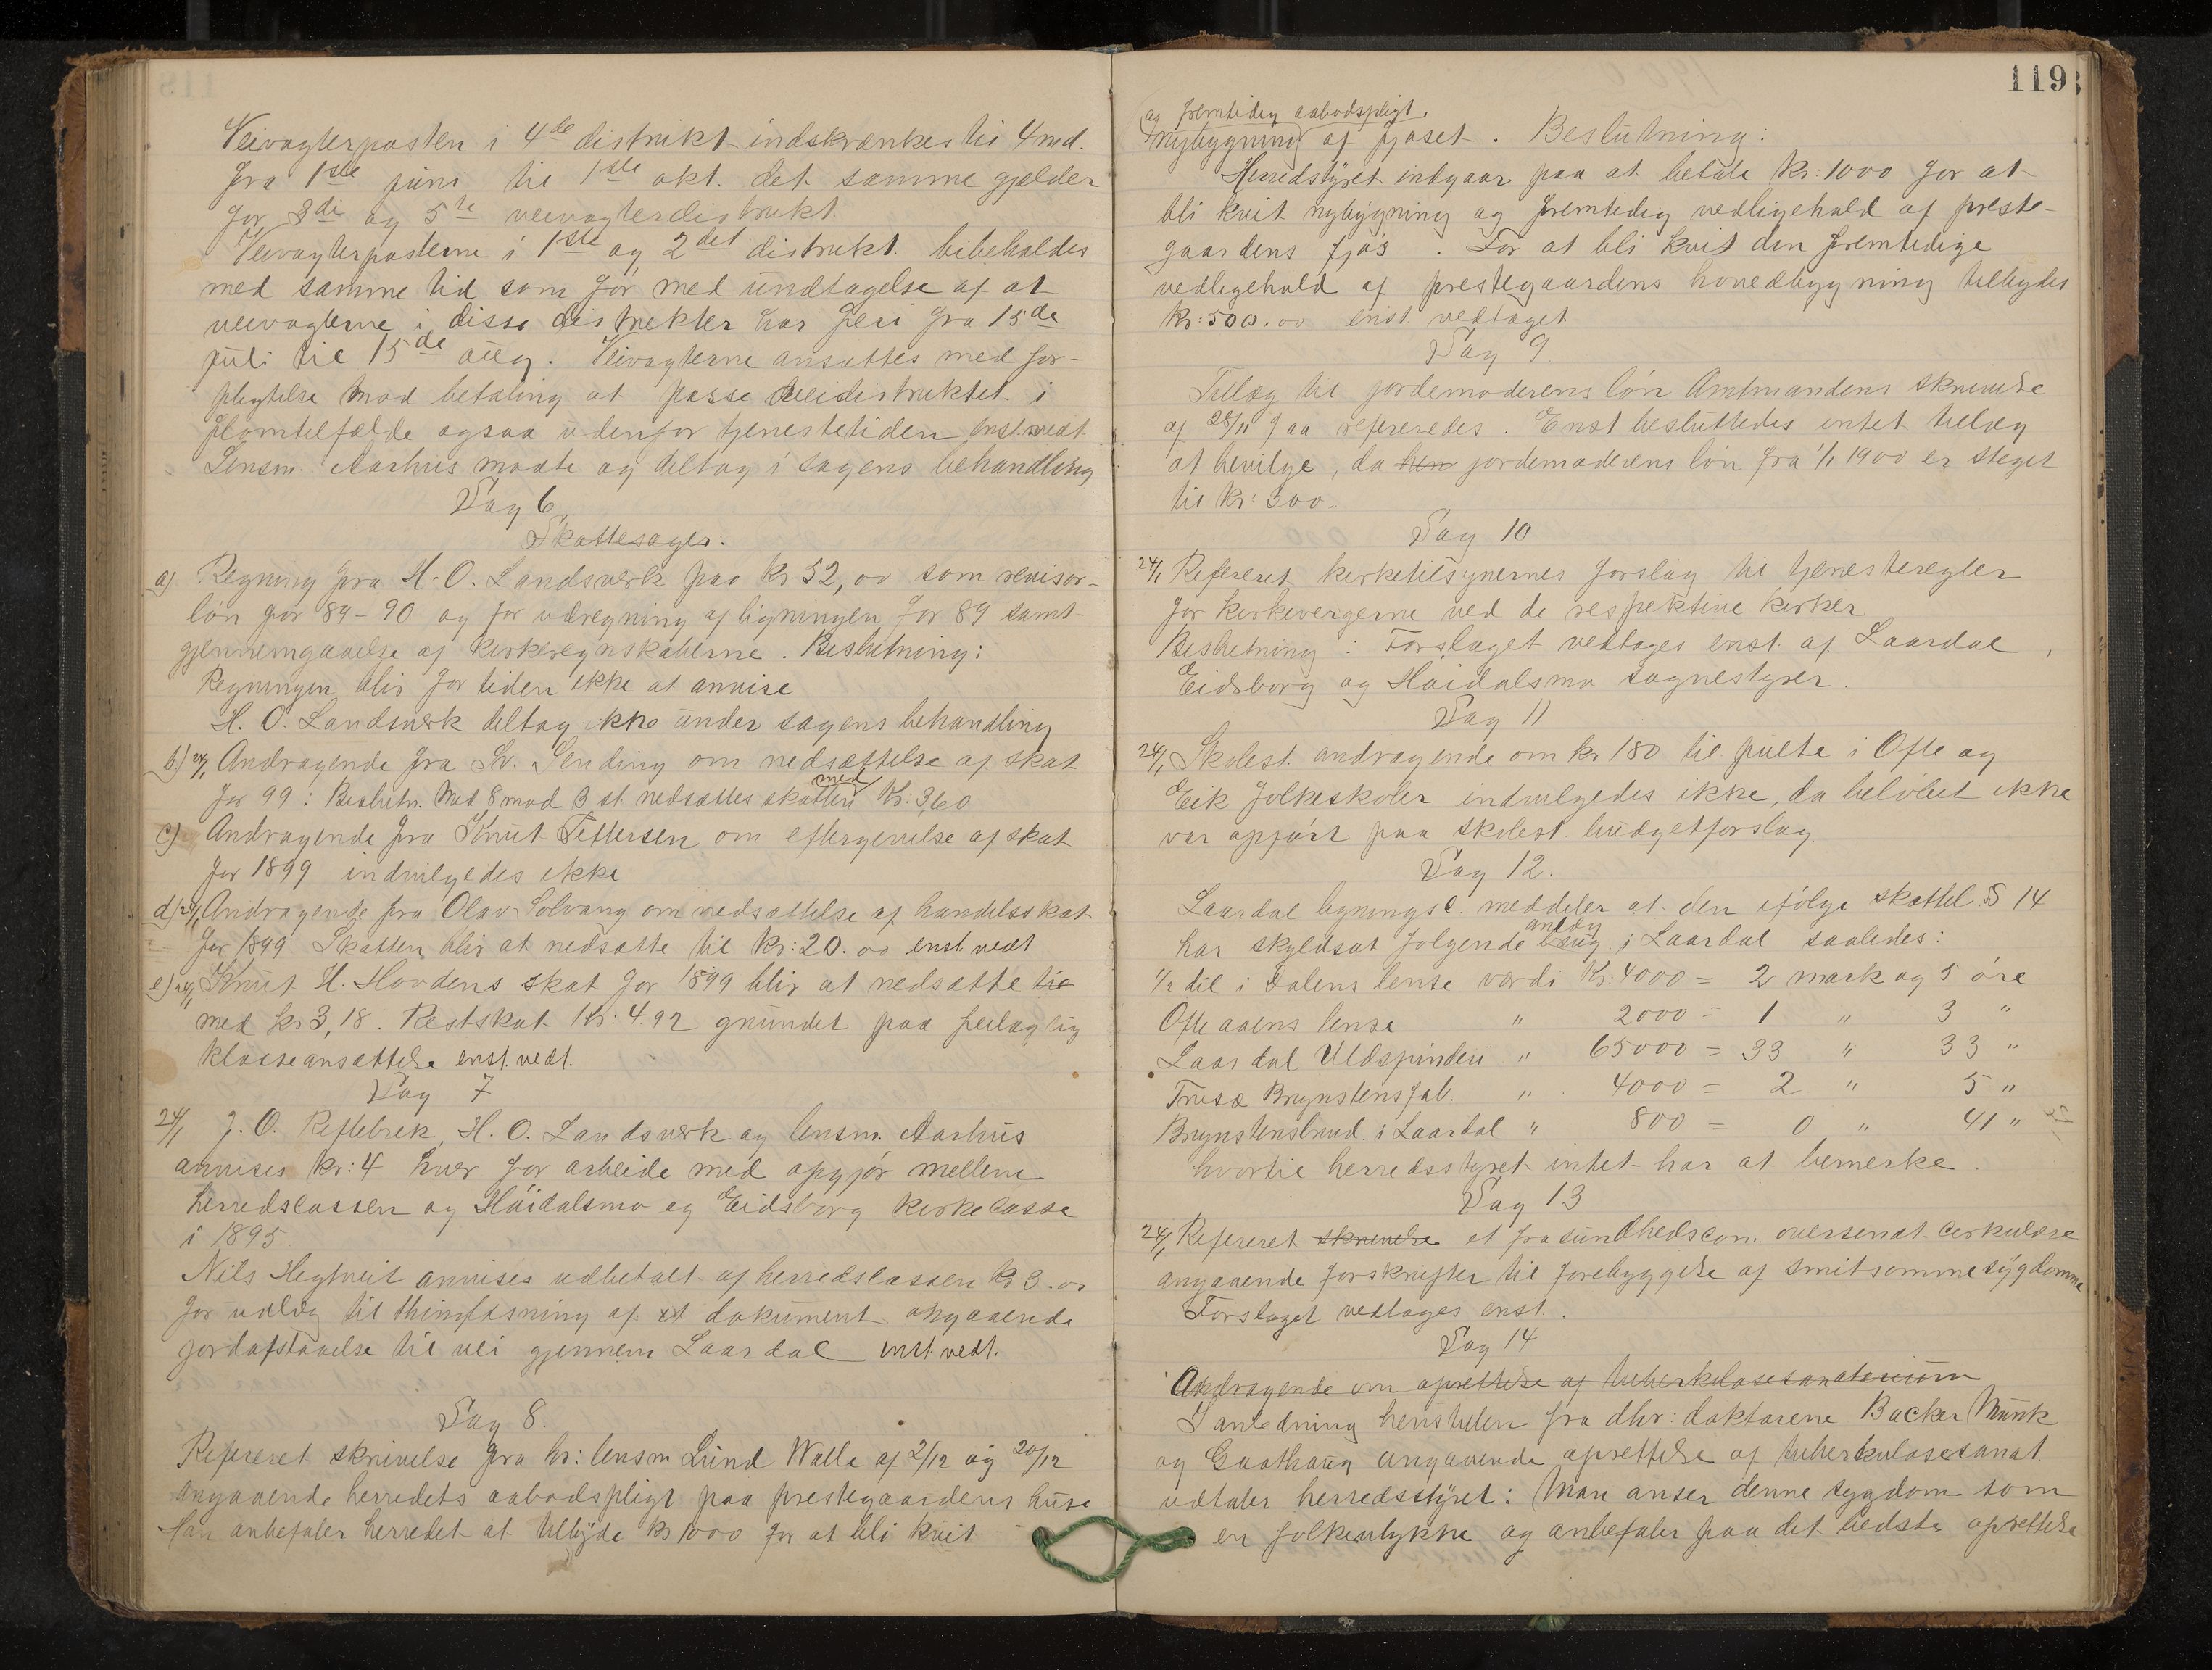 Veivogterposten i 4de distrikt indskrænkes til 4 md.
fra 1ste juni til 1ste okt. det samme gjelder
for 3di og 5te veivogterdistrikt.
Veivogterposterne i 1ste og 2det distrikt bibeholdes
med samme tid som før med undtagelse af at
veivogterne i disse distrikter har feri fra 15de
juli til 15de aug. Veivogterne ansættes med for-
pligtelse mod betaling at passe veidistriktet i
flomtilfælde ogsaa udenfor tjenestetiden enst. vedt.
Lensm. Aarhus mødte og deltog i sagens behandling
Sag 6
Skattesager.
a) Regning fra H. O. Landsverk paa Kr 52,00 som revisor-
løn for 89-90 og for udregning af ligningen for 89 samt
gjennemgaaelse af kirkeregnskaberne. Beslutning:
Regningen blir for tiden ikke at anvise
H. O. Landsverk deltog ikke under sagens behandling
b) 24/1 Andragende fra Sv. Lending om nedsættelse af skat
for 99: Beslutn. Med 8 mod 3 st. nedsættes skatten med Kr: 3,60
c) Andragende fra Knut Tellefsen om eftergivelse af skat
for 1899 indvilgedes ikke
d) 24/1 Andragende fra Olav Solvang om nedsættelse af handelsskat
for 1899 Skatten blir at nedsætte til Kr: 20.00 enst. vedt
e) 24/1 Knut H. Hovdens skat for 1899 blir at nedsætte til
med kr 3,18. Restskat Kr: 4.92 grundet paa feilagtig
klasseansættelse enst. vedt.
Sag 7
24/1 J. O. Reflebrek, H. O. Landsverk og lensm. Aarhus
anvises kr: 4 hver for arbeide med opgjør mellem
herredscassen og Høidalsmo og Eidsborg kirkecasse
i 1895
Nils Hegtveit anvises udbetalt af herredscassen Kr 3.00
for udlæg til thinglæsning af et dokument angaaende
jordafstaaelse til vei gjennem Laardal enst. vedt.
Sag 8.
Refereret skrivelse fra hr: lensm Lund Walle af 2/12 og 20/12
angaaende herredets aabodspligt paa prestegaardens huse
Han anbefaler herredet at tilbyde kr 1000 for at bli kvit
119
og fremtidig aabodspligt
nybygning af fjøset. Beslutning:
Herredstyret indgaar paa at betale Kr: 1000 for at
bli kvit nybygning og fremtidig vedligehold af preste-
gaardens fjøs. For at bli kvit den fremtidige
vedligehold af prestegaardens hovedbygning tilbydes
Kr: 500.00 enst. vedtaget
Sag 9
Tillæg til jordemoderens løn Amtmandens skrivelse
af 28/11 9aa refereredes. Enst besluttedes intet tillæg
at bevilge, da hen jordemoderens løn fra 1/1 1900 er steget
til Kr: 300.
Sag 10
24/1 Refereret kirketilsynernes forslag til tjenesteregler
for kirkevergerne ved de respektive kirker
Beslutning: Forslaget vedtages enst. af Laardal,
Eidsborg og Høidalsmo sognestyrer.
Sag 11
24/1 Skolest. andragende om kr 180 til pulte i Ofte og
Eik folkeskoler indvilgedes ikke, da beløbet ikke
var opført paa skolest. budgetforslag.
Sag 12.
Laardal ligningsc. meddeler at den ifølge skattel. § 14
har skyldsat følgende anlæg i Laardal saaledes:
1/2 del i Dalens lense værdi Kr: 4000 = 2 mark og 5 øre
Ofteaaens lense " 2000 = 1 " 3 "
Laardal Uldspinderi " 65000 = 33 " 33 "
Truse Brynstensfab. " 4000 = 2 " 5 "
Brynstensbrud. i Laardal " 800 = 0 " 41 "
hvortil herredsstyret intet har at bemerke.
Sag 13
24/1 Refereret skrivelse et fra sundhedscom. oversendt cirkulære
angaaende forskrifter til forebyggelse af smitsomme sygdomme
Forslaget vedtages enst.
Sag 14
Andragende om oprettelse af tuberkulosesanatorium
I anledning henstilen fra dhr: doktorene Backer Munk
og Gaathaug angaaende oprettelse af tuberkulosesanat.
udtaler herredsstyret: Man anser denne sygdom som
en folkeulykke og anbefaler paa det bedste oprettelse